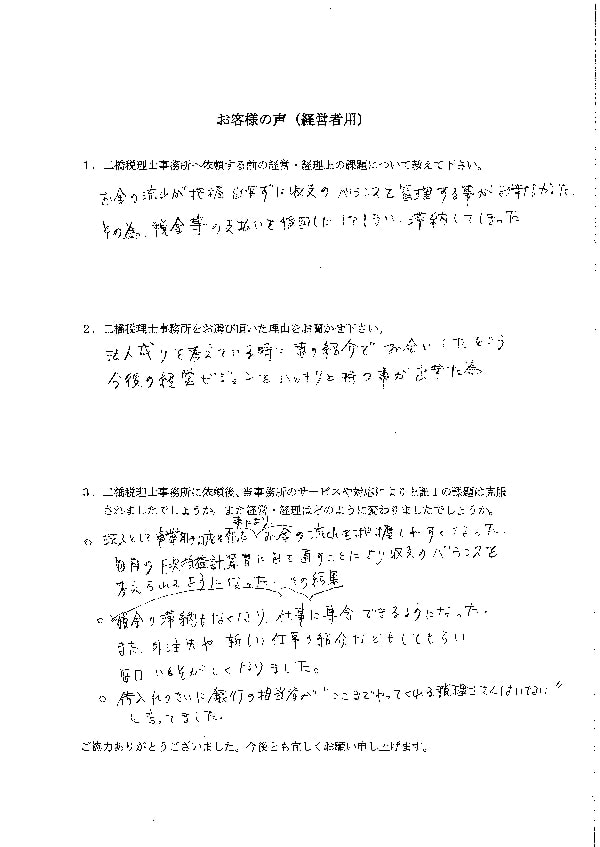 お客様の声（経営者用）
１．二橋税理士事務所へ依頼する前の経営・経理上の課題について教えて下さい。
お金の流れが把握出来ずに収支のバランスを管理する事が出来なかった。
その為、税金等の支払いを後回しに 滞納してしまった
２．二橋税理士事務所をお選び頂いた理由をお聞かせ下さい。
法人成りを考えている時に の紹介でお会いしたところ
今後の経営ビジョンをハッキリと持つ事が出来た為
３．二橋税理士事務所に依頼後、当事務所のサービスや対応により上記１の課題は克服
されましたでしょうか。また経営・経理はどのように変わりましたでしょうか。
○ 法人として お金の流れを把握しやすくなった。
毎月の月次損益計算書に目を通すことにより収支のバランスを
考えられるようになった。その結果
○ 税金の滞納もなくなり、仕事に集中できるようになった。
また、外注先や新しい仕事の紹介などもしてもらい
毎日いそがしくなりました。
○ 借入れのさいに銀行の担当者が“ここまでやってくれる税理士さんはいない”
と言ってました。
ご協力ありがとうございました。今後とも宜しくお願い申し上げます。